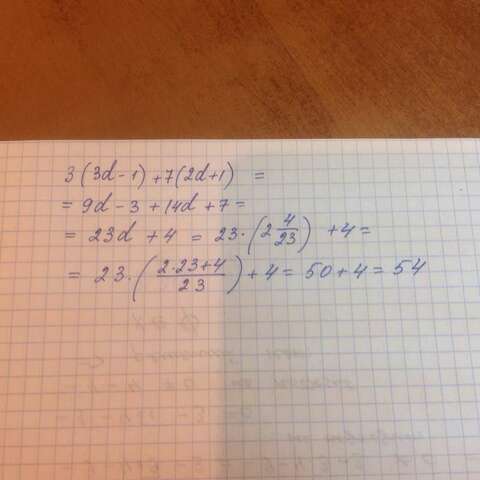 3(3d-1)+7(2d+1) =
= 9d-3+14d+7=
= 23d+4 = 23·(2 4/23) +4=
= 23·((2·23+4)/23)+4= 50+4=54